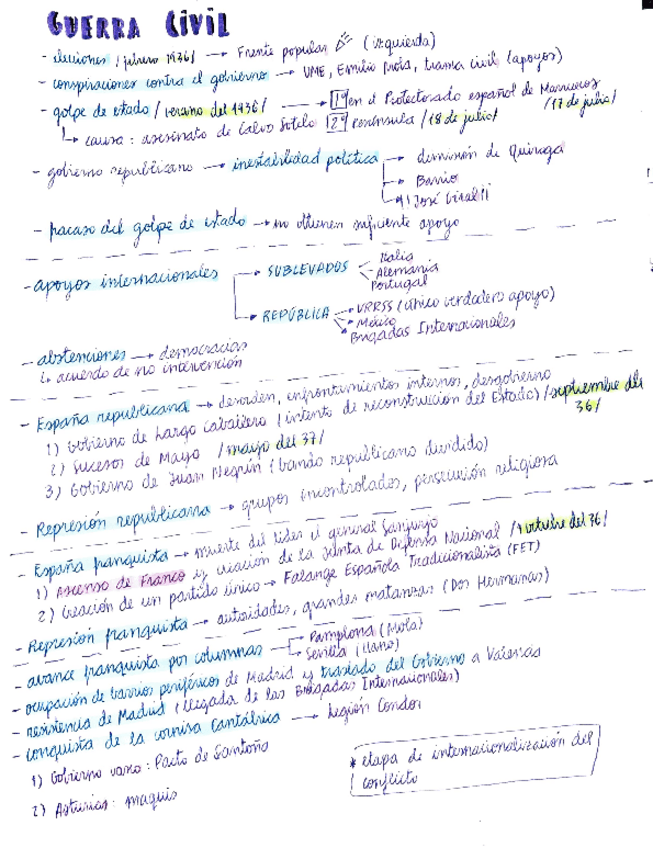 GUERRA CIVIL
- elecciones /febrero 1936/ → Frente popular (izquierda)
- conspiraciones contra el gobierno → UME, Emilio Mola, trama civil (apoyos)
- golpe de estado /verano del 1936/ → 1º en el Protectorado español de Marruecos /17 de julio/
↳ causa: asesinato de Calvo Sotelo 2º Península /18 de julio/
- gobierno republicano → inestabilidad política → dimisión de Quiroga
→ Barrio
→ José Giral
- fracaso del golpe de estado → no obtienen suficiente apoyo
- apoyos internacionales → SUBLEVADOS Italia
Alemania
Portugal
→ REPÚBLICA → URRSS (único verdadero apoyo)
→ México
Brigadas Internacionales
- abstenciones → democracias
↳ acuerdo de no intervención
- España republicana → desorden, enfrontamientos internos, desgobierno
1) Gobierno de Largo Caballero (intento de reconstrucción del Estado) /septiembre del 36/
2) Sucesos de Mayo /mayo del 37/
3) Gobierno de Juan Negrín (bando republicano dividido)
- Represión republicana → grupos incontrolados, persecución religiosa
- España franquista → muerte del líder el general Sanjurjo
1) Ascenso de Franco y creación de la Junta de Defensa Nacional /octubre del 36/
2) Creación de un partido único → Falange Española Tradicionalista (FET)
- Represión franquista → autoridades, grandes matanzas (Dos Hermanas)
- avance franquista por columnas → Pamplona (Mola)
→ Sevilla (Llano)
- ocupación de barrios periféricos de Madrid y traslado del Gobierno a Valencia
- resistencia de Madrid (llegada de las Brigadas Internacionales)
- conquista de la cornisa Cantábrica → Legión Condor
1) Gobierno vasco: Pacto de Santoña
2) Asturias: maquis
* etapa de internacionalización del
conflicto